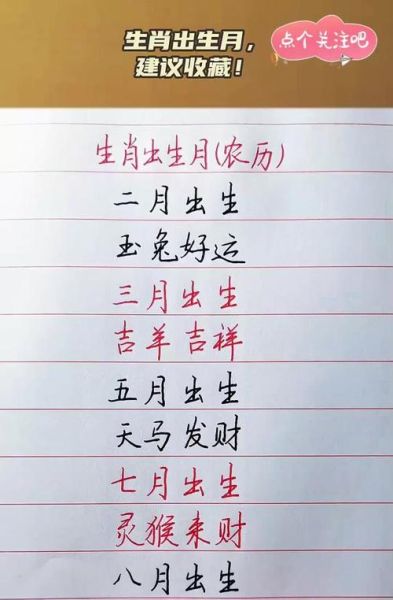 生肖出生月，
建议收藏！
点个关注吧
生肖出生月(农历)
二月出生
玉兔好运
三月出生
吉羊吉祥
五月出生
天马发财
七月出生
灵猴来财
八月出生